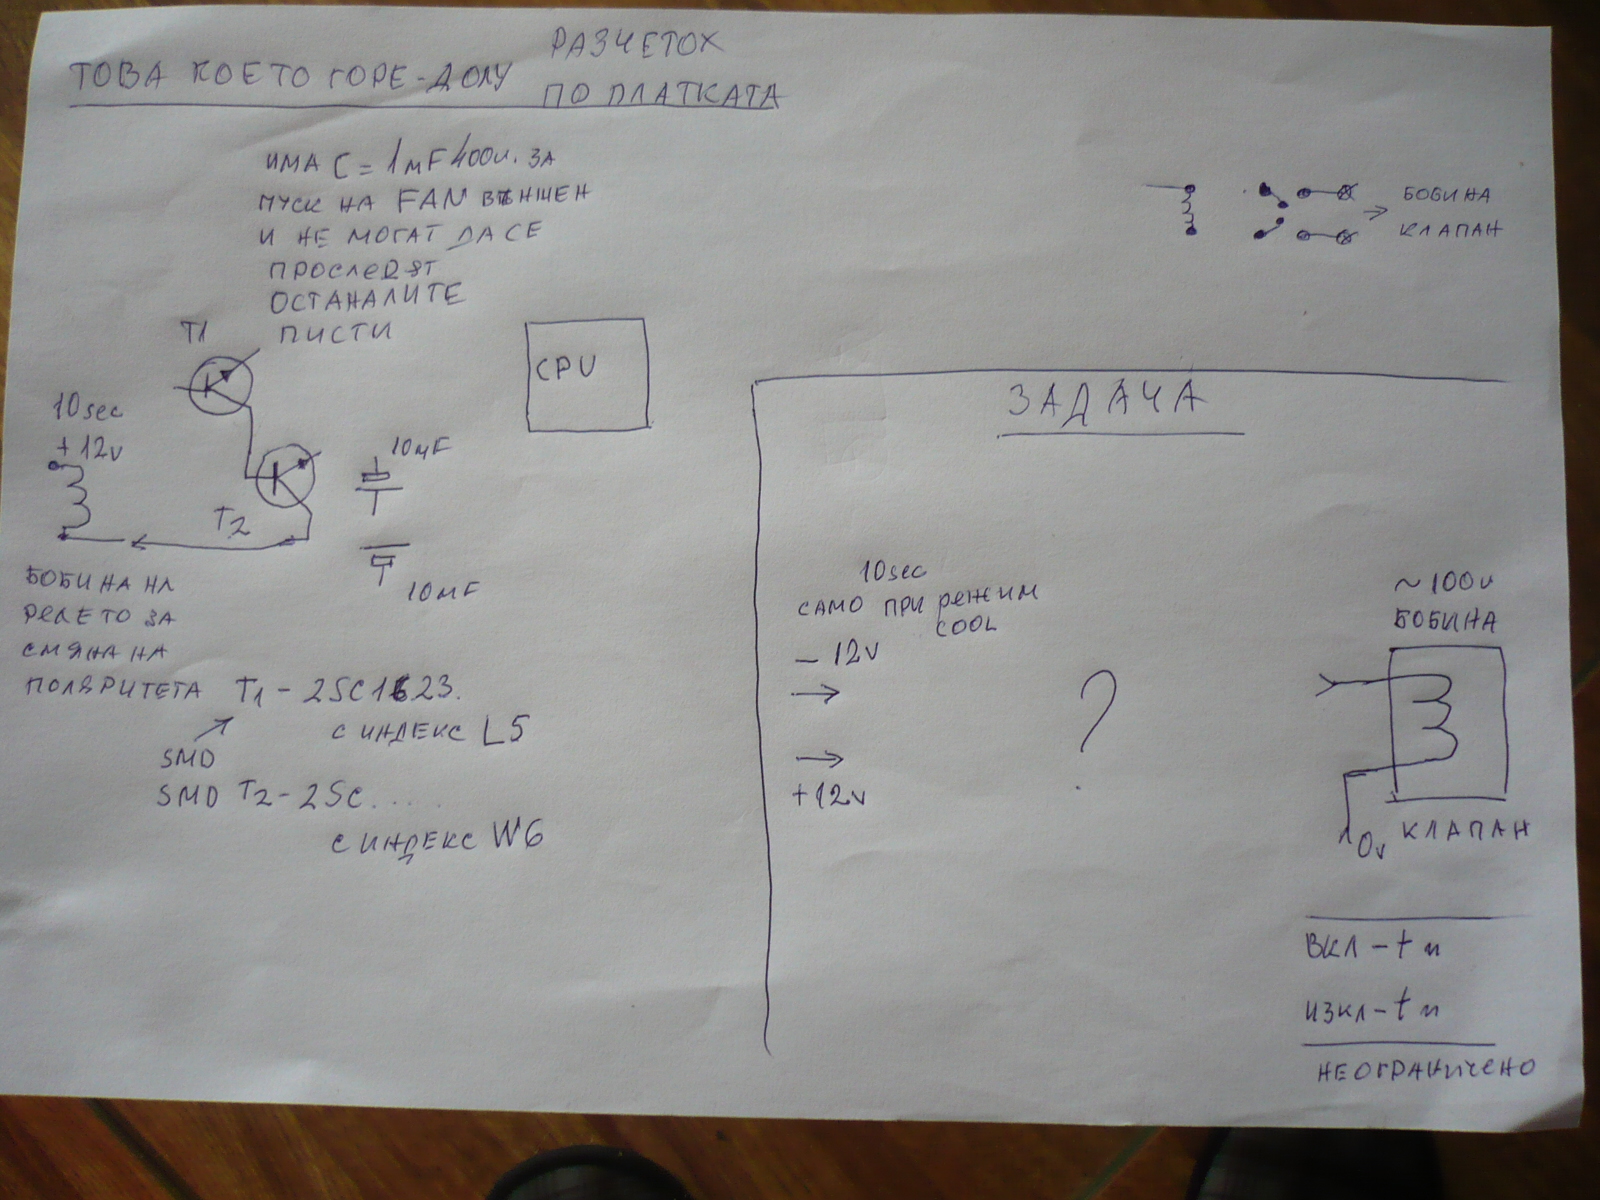 ТОВА КОЕТО ГОРЕ-ДОЛУ РАЗЧЕТОХ
ПО ПЛАТКАТА
ИМА C = 1мF 400v. ЗА
ПУСК НА FAN ВЪНШЕН
И НЕ МОГАТ ДА СЕ
ПРОСЛЕДЯТ
ОСТАНАЛИТЕ
ПИСТИ
T1
CPU
10sec
+12v
10мF
T2
10мF
БОБИНА НА
РЕЛЕТО ЗА
СМЯНА НА
ПОЛЯРИТЕТА
T1 - 2SC1623.
С ИНДЕКС L5
SMD
SMD T2 - 2SC....
С ИНДЕКС W6
БОБИНА
КЛАПАН
ЗАДАЧА
10sec
САМО ПРИ РЕЖИМ
COOL
- 12v
?
+12v
~100v
БОБИНА
0v КЛАПАН
ВКЛ - t n
ИЗКЛ - t n
НЕОГРАНИЧЕНО